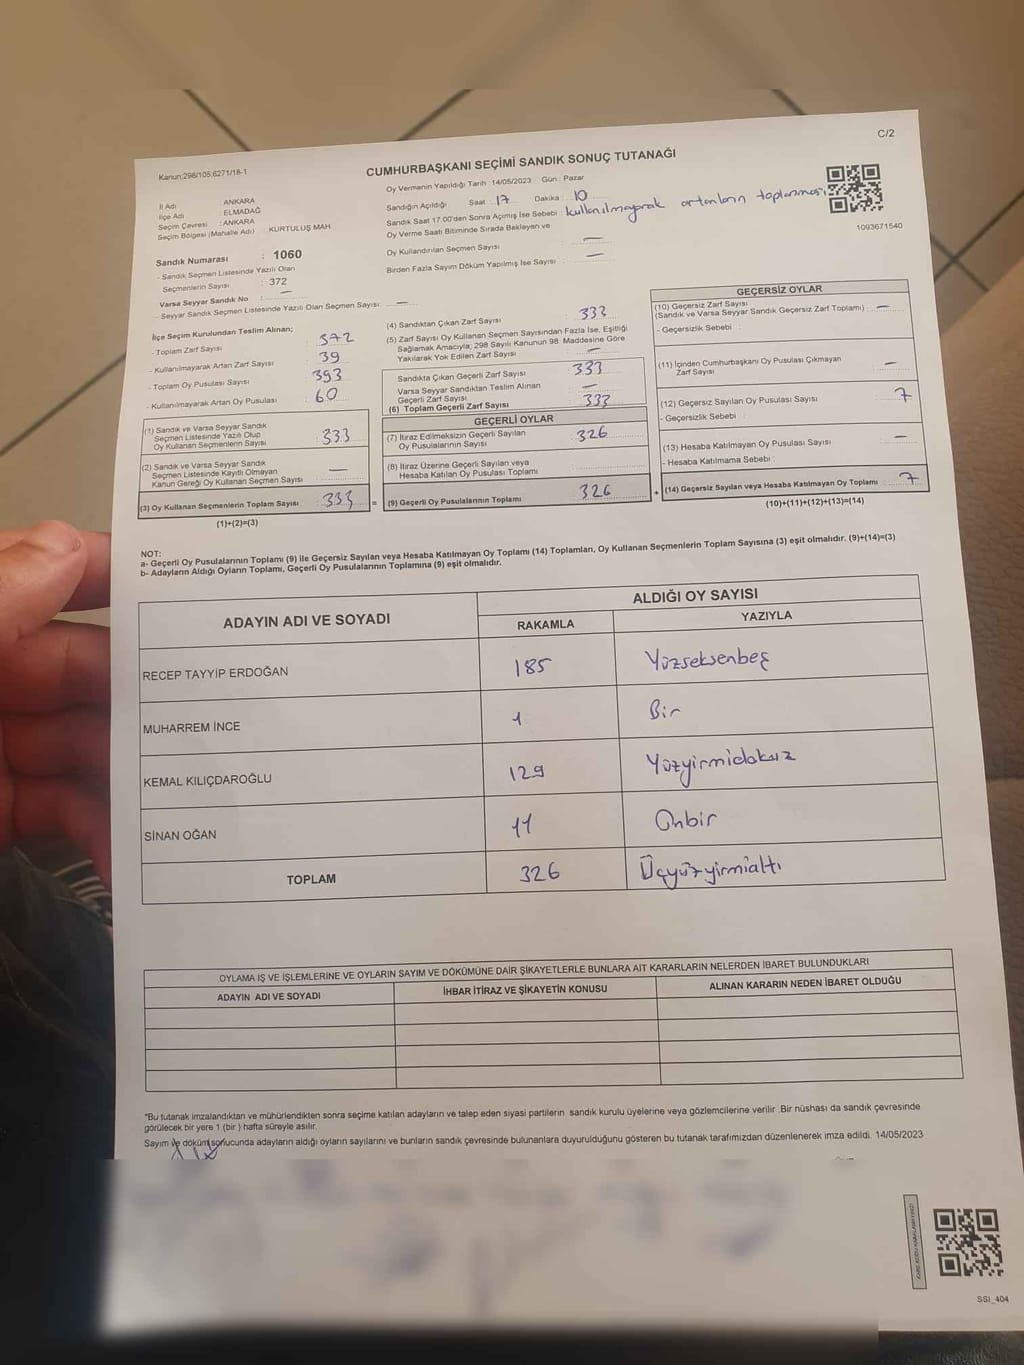 C/2
Kanun:298/105;6271/18-1
CUMHURBAŞKANI SEÇİMİ SANDIK SONUÇ TUTANAĞI
Oy Vermenin Yapıldığı Tarih : 14/05/2023 Gün : Pazar
İl Adı : ANKARA
İlçe Adı : ELMADAĞ
Seçim Çevresi : ANKARA
Seçim Bölgesi (Mahalle Adı) : KURTULUŞ MAH
Sandığın Açıldığı Saat : 17 Dakika : 10
Sandık Saat 17.00'den Sonra Açımış İse Sebebi : kullanılmayarak artanların toplanması
Oy Verme Saati Bitiminde Sırada Bekleyen ve
Oy Kullandırılan Seçmen Sayısı : —
Birden Fazla Sayım Döküm Yapılmış İse Sayısı : —
1093671540
Sandık Numarası : 1060
- Sandık Seçmen Listesinde Yazılı Olan
Seçmenlerin Sayısı : 372
Varsa Seyyar Sandık No : —
- Seyyar Sandık Seçmen Listesinde Yazılı Olan Seçmen Sayısı: —
İlçe Seçim Kurulundan Teslim Alınan;
- Toplam Zarf Sayısı : 372
- Kullanılmayarak Artan Zarf Sayısı : 39
- Toplam Oy Pusulası Sayısı : 393
- Kullanılmayarak Artan Oy Pusulası : 60
(1) Sandık ve Varsa Seyyar Sandık
Seçmen Listesinde Yazılı Olup
Oy Kullanan Seçmenlerin Sayısı : 333
(2) Sandık ve Varsa Seyyar Sandık
Seçmen Listesinde Kayıtlı Olmayan
Kanun Gereği Oy Kullanan Seçmen Sayısı : —
(3) Oy Kullanan Seçmenlerin Toplam Sayısı : 333 =
(1)+(2)=(3)
(4) Sandıktan Çıkan Zarf Sayısı : 333
(5) Zarf Sayısı Oy Kullanan Seçmen Sayısından Fazla İse, Eşitliği
Sağlamak Amacıyla; 298 Sayılı Kanunun 98. Maddesine Göre
Yakılarak Yok Edilen Zarf Sayısı : —
Sandıkta Çıkan Geçerli Zarf Sayısı : 333
Varsa Seyyar Sandıktan Teslim Alınan
Geçerli Zarf Sayısı : —
(6) Toplam Geçerli Zarf Sayısı : 333
GEÇERLİ OYLAR
(7) İtiraz Edilmeksizin Geçerli Sayılan
Oy Pusulalarının Sayısı : 326
(8) İtiraz Üzerine Geçerli Sayılan veya
Hesaba Katılan Oy Pusulası Toplamı :
(9) Geçerli Oy Pusulalarının Toplamı : 326 +
GEÇERSİZ OYLAR
(10) Geçersiz Zarf Sayısı
(Sandık ve Varsa Seyyar Sandık Geçersiz Zarf Toplamı) : —
- Geçersizlik Sebebi :
(11) İçinden Cumhurbaşkanı Oy Pusulası Çıkmayan
Zarf Sayısı : —
(12) Geçersiz Sayılan Oy Pusulası Sayısı : 7
- Geçersizlik Sebebi :
(13) Hesaba Katılmayan Oy Pusulası Sayısı : —
- Hesaba Katılmama Sebebi :
(14) Geçersiz Sayılan veya Hesaba Katılmayan Oy Toplamı : 7
(10)+(11)+(12)+(13)=(14)
NOT:
a- Geçerli Oy Pusulalarının Toplamı (9) ile Geçersiz Sayılan veya Hesaba Katılmayan Oy Toplamı (14) Toplamları, Oy Kullanan Seçmenlerin Toplam Sayısına (3) eşit olmalıdır. (9)+(14)=(3)
b- Adayların Aldığı Oyların Toplamı, Geçerli Oy Pusulalarının Toplamına (9) eşit olmalıdır.
ADAYIN ADI VE SOYADI ALDIĞI OY SAYISI
RAKAMLA YAZIYLA
RECEP TAYYİP ERDOĞAN 185 Yüzseksenbeş
MUHARREM İNCE 1 Bir
KEMAL KILIÇDAROĞLU 129 Yüzyirmidokuz
SİNAN OĞAN 11 Onbir
TOPLAM 326 Üçyüzyirmialtı
OYLAMA İŞ VE İŞLEMLERİNE VE OYLARIN SAYIM VE DÖKÜMÜNE DAİR ŞİKAYETLERLE BUNLARA AİT KARARLARIN NELERDEN İBARET BULUNDUKLARI
ADAYIN ADI VE SOYADI İHBAR İTİRAZ VE ŞİKAYETİN KONUSU ALINAN KARARIN NEDEN İBARET OLDUĞU
*Bu tutanak imzalandıktan ve mühürlendikten sonra seçime katılan adayların ve talep eden siyasi partilerin sandık kurulu üyelerine veya gözlemcilerine verilir .Bir nüshası da sandık çevresinde
görülecek bir yere 1 (bir ) hafta süreyle asılır.
Sayım ve döküm sonucunda adayların aldığı oyların sayılarını ve bunların sandık çevresinde bulunanlara duyurulduğunu gösteren bu tutanak tarafımızdan düzenlenerek imza edildi. 14/05/2023
SSI_404